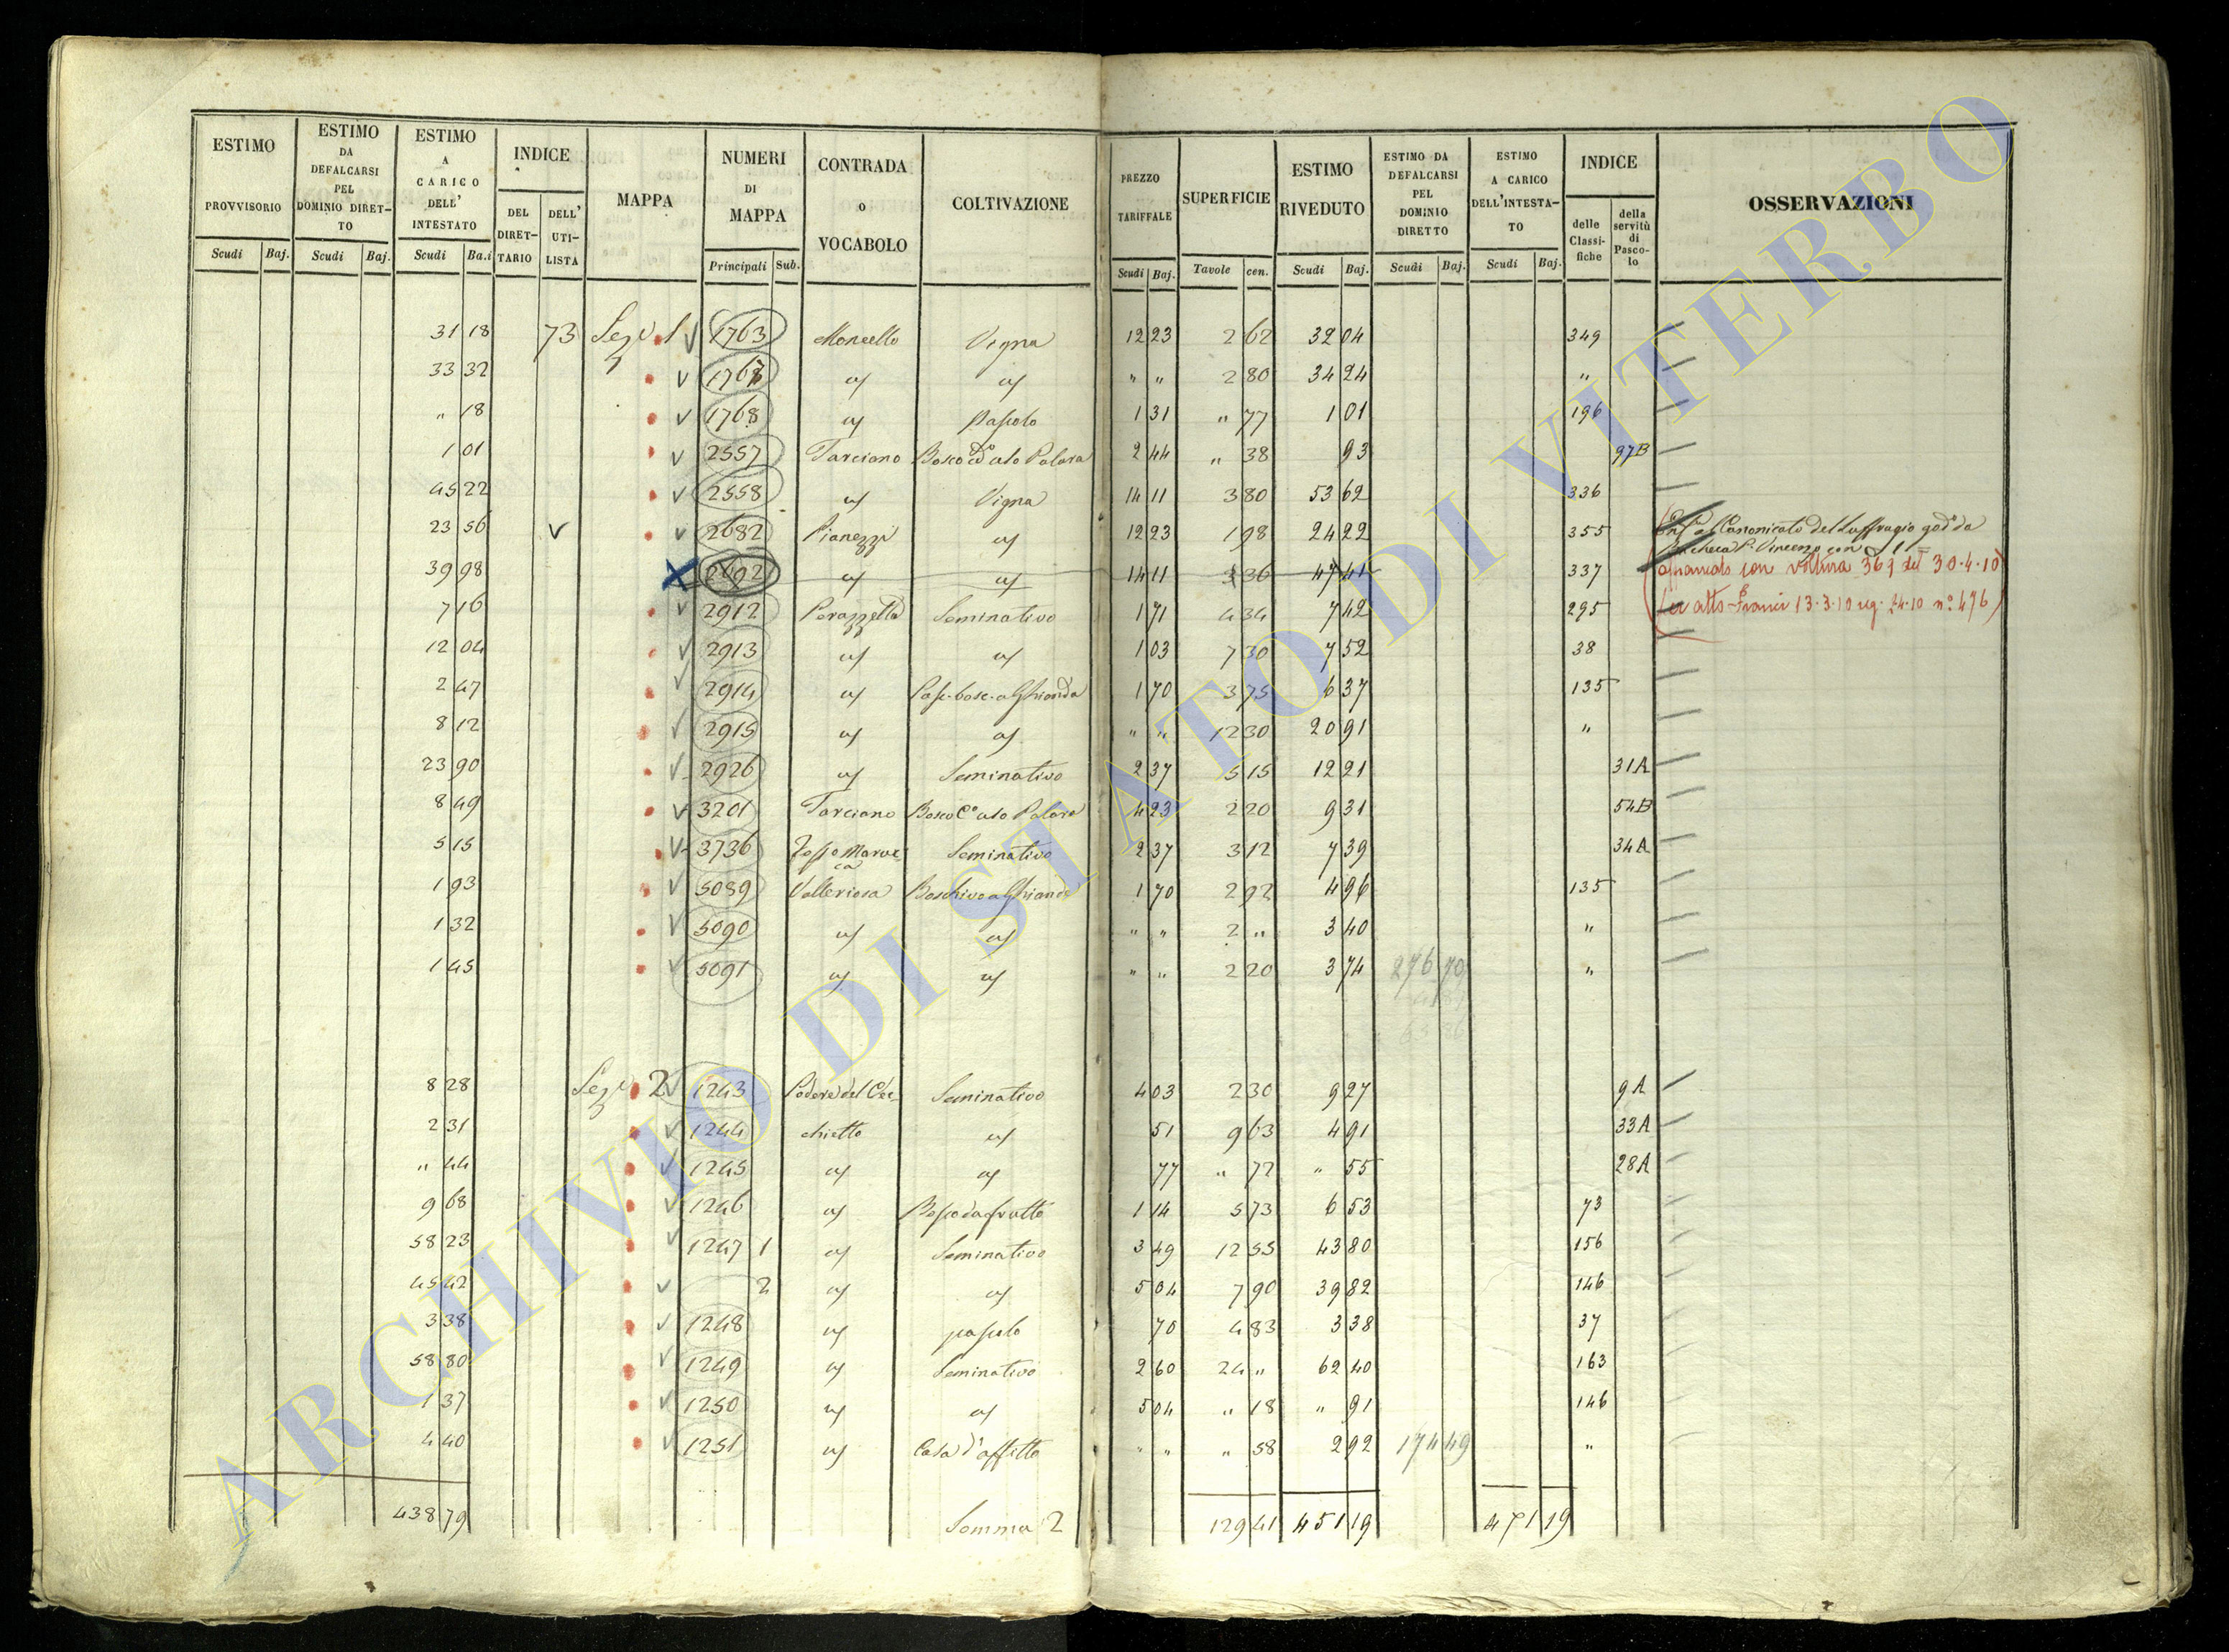 ESTIMO PROVVISORIO Scudi Baj. ESTIMO DA DEFALCARSI PEL DOMINIO DIRET-TO Scudi Baj. ESTIMO A CARICO DELL' INTESTATO Scudi Ba.i INDICE DEL DIRET-TARIO DELL' UTI-LISTA MAPPA NUMERI DI MAPPA Principali Sub. CONTRADA o VOCABOLO COLTIVAZIONE PREZZO TARIFFALE Scudi Baj. SUPERFICIE Tavole cen. ESTIMO RIVEDUTO Scudi Baj. ESTIMO DA DEFALCARSI PEL DOMINIO DIRETTO Scudi Baj. ESTIMO A CARICO DELL'INTESTA-TO Scudi Baj. INDICE delle Classi-fiche della servitù di Pasco-lo OSSERVAZIONI
31 18 73 Sez. 1 V 1763 Moncello Vigna 12 23 2 62 32 04 349
33 32 V 1767 " " " " 2 80 34 24 "
" 18 V 1768 " Pascolo 1 31 " 77 1 01 196
1 01 V 2557 Tarciano Bosco ced° uso Palara 2 44 " 38 93 97B
45 22 V 2558 " Vigna 14 11 3 80 53 62 336
23 56 V V 2682 Pianezzi " 12 23 1 98 24 22 355 Canonicato del Suffragio god° da
Vincenzo con
39 98 X 2692 " " 14 11 3 36 47 41 337 affrancato con voltura 363 del 30.4.10
7 16 V 2912 Perazzetta Seminativo 1 71 4 34 7 42 295 per atto Franci 13.3.10 reg. 2.4.10 n° 476)
12 04 V 2913 " " 1 03 7 30 7 52 38
2 47 V 2914 " Pasc. bosc. a Ghianda 1 70 3 75 6 37 135
8 12 V 2915 " " " " 12 30 20 91 "
23 90 V 2926 " Seminativo 2 37 5 15 12 21 31A
8 49 V 3201 Tarciano Bosco C° uso Palara 4 23 2 20 9 31 54B
5 15 V 3736 Fosso Maruc-ca Seminativo 2 37 3 12 7 39 34A
1 93 V 5089 Valleriosa Boschivo a Ghianda 1 70 2 92 4 96 135
1 32 V 5090 " " " " 2 " 3 40 "
1 45 V 5091 " " " " 2 20 3 74 276 70 "
8 28 Sez. 2 V 1243 Podere del Cec- Seminativo 4 03 2 30 9 27 9A
2 31 V 1244 chietto " 51 9 63 4 91 33A
" 44 V 1245 " " 77 " 72 " 55 28A
9 68 V 1246 " Bosco da frutto 1 14 5 73 6 53 73
58 23 V 1247 1 " Seminativo 3 49 12 55 43 80 156
45 42 V 2 " " 5 04 7 90 39 82 146
3 38 V 1248 " pascolo 70 4 83 3 38 37
58 80 V 1249 " Seminativo 2 60 24 " 62 40 163
1 37 V 1250 " " 5 04 " 18 " 91 146
4 40 V 1251 " Casa d'affitto " " " 58 2 92 174 49 "
438 79 Somma 2 129 41 451 19 471 19
ARCHIVIO DI STATO DI VITERBO